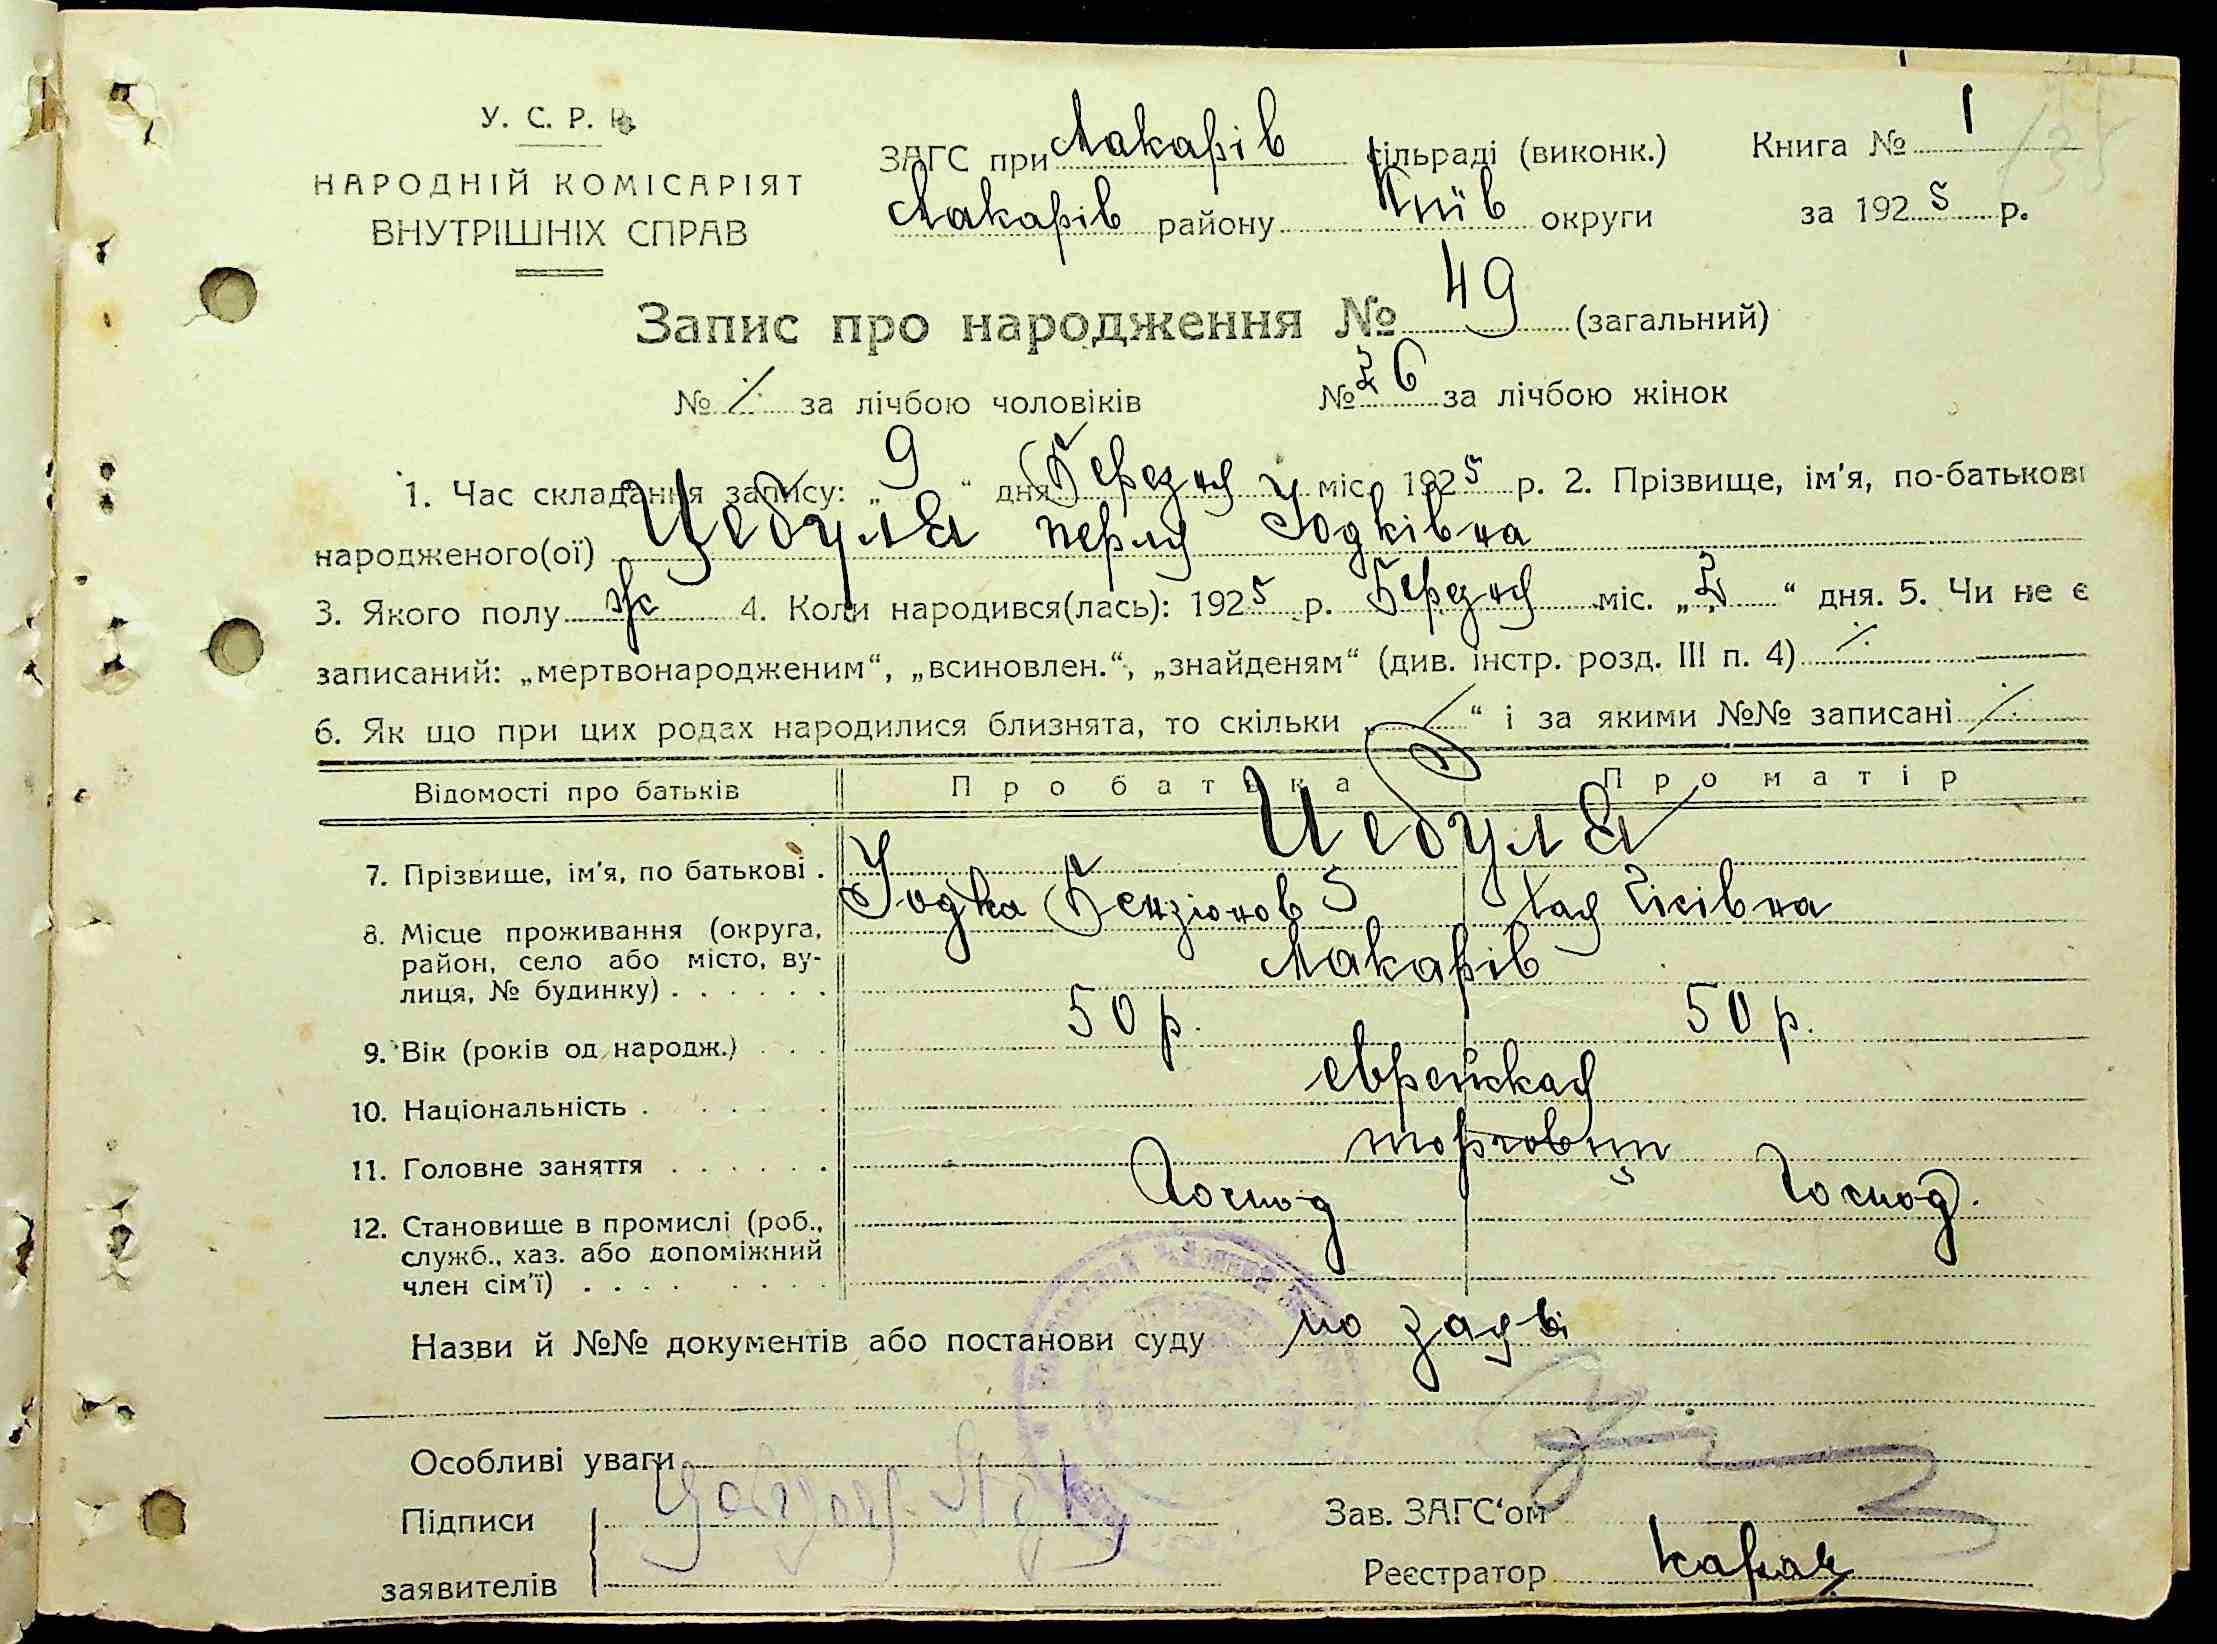 У. С. Р. Р.
НАРОДНІЙ КОМІСАРІЯТ
ВНУТРІШНІХ СПРАВ
ЗАГС при Макарів сільраді (виконк.) Книга № 1
Макарів району Київ округи за 1925 р.
Запис про народження № 49 (загальний)
№ ⁒ за лічбою чоловіків № 26 за лічбою жінок
1. Час складання запису: „ 9 “ дня Березня міс. 1925 р. 2. Прізвище, ім'я, по-батькові
народженого(ої) Цебуля Перля Іодківна
3. Якого полу ж 4. Коли народився(лась): 1925 р. Березня міс. „ 2 “ дня. 5. Чи не є
записаний: „мертвонародженим“, „всиновлен.“, „знайденям“ (див. інстр. розд. III п. 4) ⁒
6. Як що при цих родах народилися близнята, то скільки „ ⁒ “ і за якими №№ записані ⁒
Відомості про батьків Про батька Про матір
Цебуля
7. Прізвище, ім'я, по батькові . Іодка Бенціонов Хая
8. Місце проживання (округа,
район, село або місто, ву-
лиця, № будинку) . . . . . . Макарів
9. Вік (років од народж.) . . . 50 р. 50 р.
10. Національність . . . . . . еврейская
11. Головне заняття . . . . . .
12. Становище в промислі (роб.,
служб., хаз. або допоміжний
член сім'ї) . . . . . . . . Господ Господ.
Назви й №№ документів або постанови суду по заяві
Особливі уваги
Підписи
заявителів
Зав. ЗАГС'ом
Реєстратор